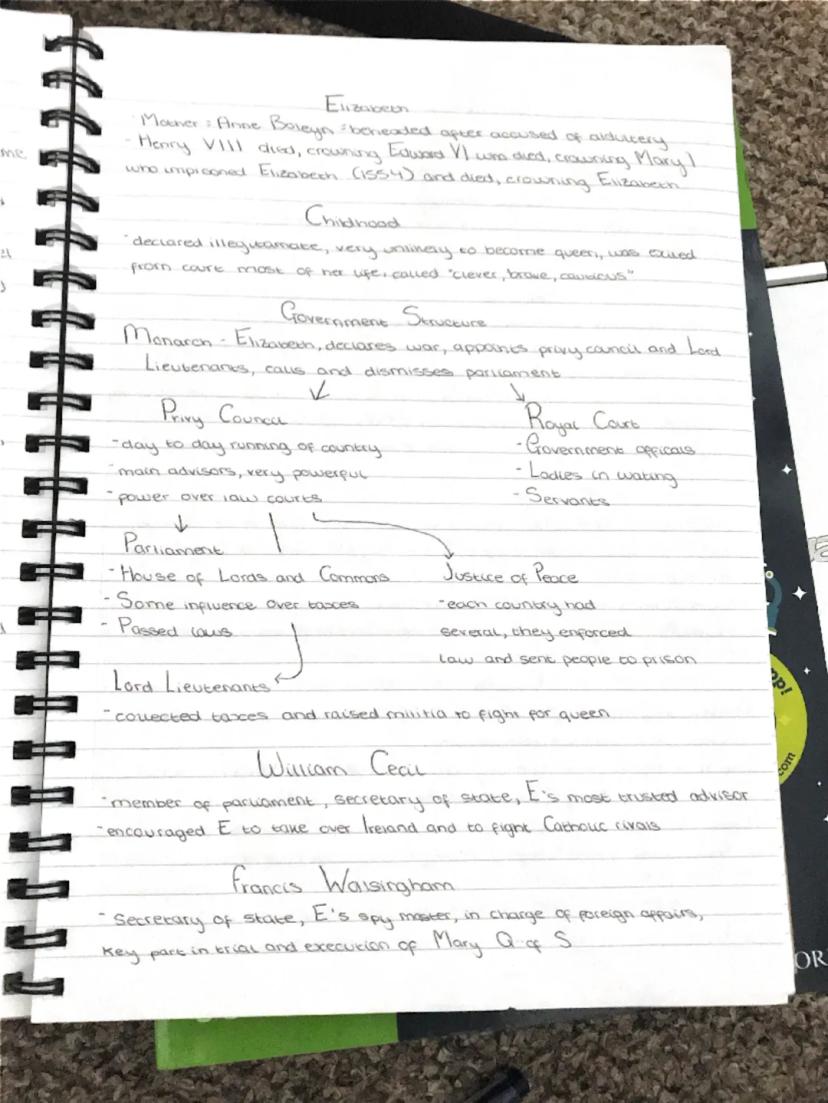 Elizabeth
Mother : Anne Boleyn - beheaded after accused of aldultery
- Henry VIII died, crowning Edward VI who died, crowning Mary I
who imprisoned Elizabeth (1554) and died, crowning Elizabeth
Childhood
- declared illegitamate, very unlikely to become queen, was exiled
from court most of her life, called "clever, brave, cautious"
Government Structure
Monarch - Elizabeth, declares war, appoints privy council and Lord
Lieutenants, calls and dismisses parliament
Privy Council
- day to day running of country
- main advisors, very powerful
- power over law courts
Royal Court
- Government officals
- Ladies in wating
- Servants
Parliament
- House of Lords and Commons
- Some influence over taxes
- Passed laws
Justice of Peace
- each country had
several, they enforced
law and sent people to prison
Lord Lieutenants
- collected taxes and raised militia to fight for queen
William Cecil
- member of parliament, secretary of state, E's most trusted advisor
- encouraged E to take over Ireland and to fight Catholic rivals
Francis Walsingham
- Secretary of state, E's spy master, in charge of foreign affairs,
key part in trial and execution of Mary Q of S
me
OR
.com